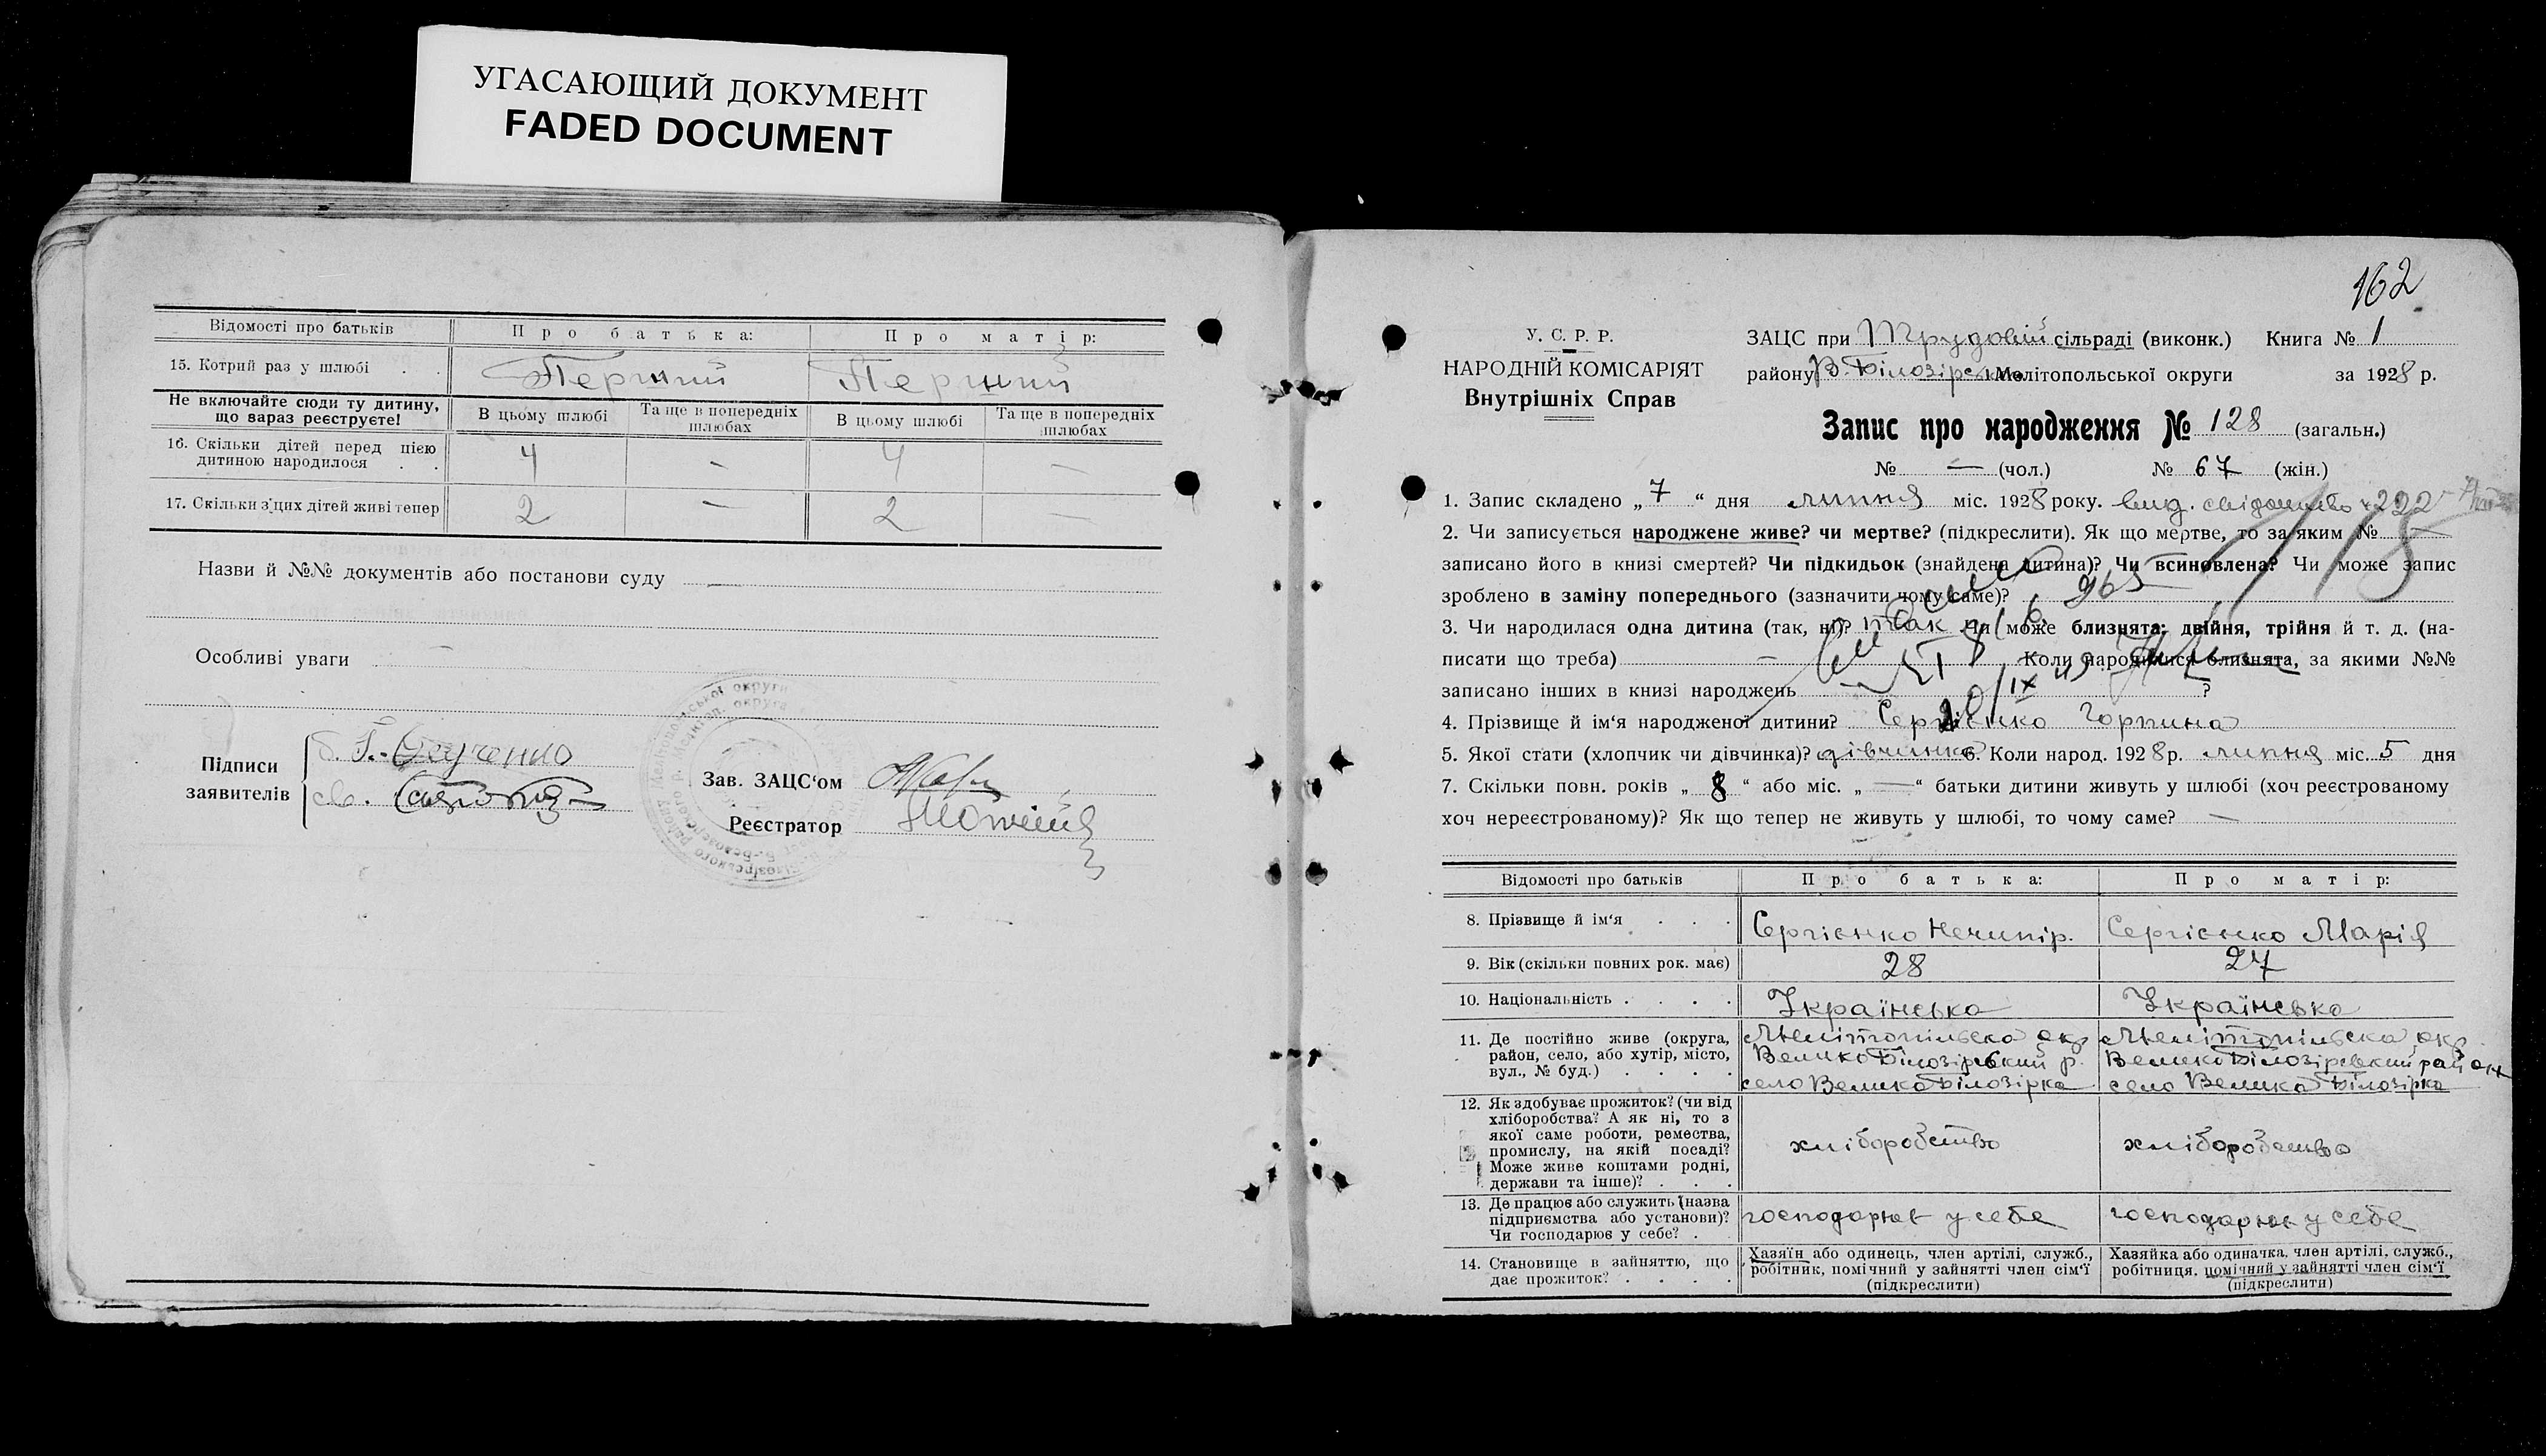 УГАСАЮЩИЙ ДОКУМЕНТ
FADED DOCUMENT
Відомості про батьків Про батька: Про матір:
15. Котрий раз у шлюбі . . Перший Перший
Не включайте сюди ту дитину, що вараз реєструєте! В цьому шлюбі Та ще в попередніх шлюбах В цьому шлюбі Та ще в попередніх шлюбах
16. Скільки дітей перед цією дитиною народилося . . 4 — 4 —
17. Скільки з цих дітей живі тепер 2 — 2 —
Назви й №№ документів або постанови суду —
Особливі уваги —
Підписи заявителів
Зав. ЗАЦС‘ом
Реєстратор
162
У. С. Р. Р.
НАРОДНІЙ КОМІСАРІЯТ
Внутрішніх Справ
ЗАЦС при Трудовій сільраді (виконк.) Книга № 1
району В. Білозірськ. Мелітопольської округи за 1928 р.
Запис про народження № 128 (загальн.)
№ — (чол.) № 67 (жін.)
1. Запис складено „ 7 “ дня липня міс. 1928 року. вид. свідоцтво 222
2. Чи записується народжене живе? чи мертве? (підкреслити). Як що мертве, то за яким №
записано його в книзі смертей? Чи підкидьок (знайдена дитина)? Чи всиновлена? Чи може запис
зроблено в заміну попереднього (зазначити чому саме)?
3. Чи народилася одна дитина (так, ні)? так Чи може близнята: двійня, трійня й т. д. (на-
писати що треба) — Коли народилися близнята, за якими №№
записано інших в книзі народжень ?
4. Прізвище й ім‘я народженої дитини? Сергієнко Горпина
5. Якої стати (хлопчик чи дівчинка)? дівчинка 6. Коли народ. 1928 р. липня міс. 5 дня
7. Скільки повн. років „ 8 “ або міс. „ — “ батьки дитини живуть у шлюбі (хоч реєстрованому
хоч нереєстрованому)? Як що тепер не живуть у шлюбі, то чому саме? —
Відомості про батьків Про батька: Про матір:
8. Прізвище й ім‘я . . . Сергієнко Нечипір. Сергієнко Марія
9. Вік (скільки повних рок. має) 28 27
10. Національність . . . . Українська Українська
11. Де постійно живе (округа, район, село, або хутір, місто, вул., № буд.) . . . . Мелітопільска окр Велико Білозірський р. село Велика Білозірка Мелітопільска окр. Велико Білозірський район село Велика Білозірка
12. Як здобуває прожиток? (чи від хліборобства? А як ні, то з якої саме роботи, ремества, промислу, на якій посаді? Може живе коштами родні, держави та інше)? . . . хліборобство хліборобство
13. Де працює або служить (назва підприємства або установи)? Чи господарює у себе? . господарює у себе господарює у себе
14. Становище в зайняттю, що дає прожиток? . . . . Хазяїн або одинець, член артілі, служб., робітник, помічний у зайнятті член сім‘ї (підкреслити) Хазяйка або одиначка, член артілі, служб., робітниця, помічний у зайнятті член сім‘ї (підкреслити)